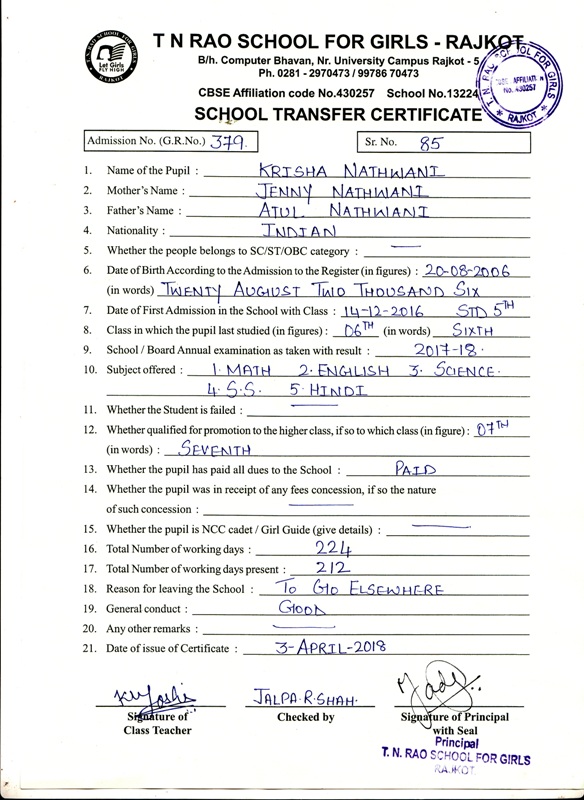 T. N. RAO SCHOOL FOR GIRLS
Let Girls
FLY HIGH
RAJKOT
T N RAO SCHOOL FOR GIRLS - RAJKOT
B/h. Computer Bhavan, Nr. University Campus Rajkot - 5
Ph. 0281 - 2970473 / 99786 70473
CBSE Affiliation code No.430257 School No.13224
T. N. RAO SCHOOL FOR GIRLS
CBSE AFFILIATION
No. 430257
RAJKOT
SCHOOL TRANSFER CERTIFICATE
Admission No. (G.R.No.) 379. Sr. No. 85
1. Name of the Pupil : KRISHA NATHWANI
2. Mother's Name : JENNY NATHWANI
3. Father's Name : ATUL NATHWANI
4. Nationality : INDIAN
5. Whether the people belongs to SC/ST/OBC category : —
6. Date of Birth According to the Admission to the Register (in figures) : 20-08-2006
(in words) TWENTY AUGUST TWO THOUSAND SIX
7. Date of First Admission in the School with Class : 14-12-2016 STD 5TH
8. Class in which the pupil last studied (in figures) : 06TH (in words) SIXTH
9. School / Board Annual examination as taken with result : 2017-18.
10. Subject offered : 1. MATH 2. ENGLISH 3. SCIENCE.
4. S.S. 5. HINDI
11. Whether the Student is failed : —
12. Whether qualified for promotion to the higher class, if so to which class (in figure) : 07TH
(in words) : SEVENTH
13. Whether the pupil has paid all dues to the School : PAID
14. Whether the pupil was in receipt of any fees concession, if so the nature
of such concession : —
15. Whether the pupil is NCC cadet / Girl Guide (give details) : —
16. Total Number of working days : 224
17. Total Number of working days present : 212
18. Reason for leaving the School : TO GO ELSEWHERE
19. General conduct : GOOD
20. Any other remarks : —
21. Date of issue of Certificate : 3-APRIL-2018
JALPA.R.SHAH.
Signature of Class Teacher
Checked by
Signature of Principal with Seal
Principal
T. N. RAO SCHOOL FOR GIRLS
RAJKOT.